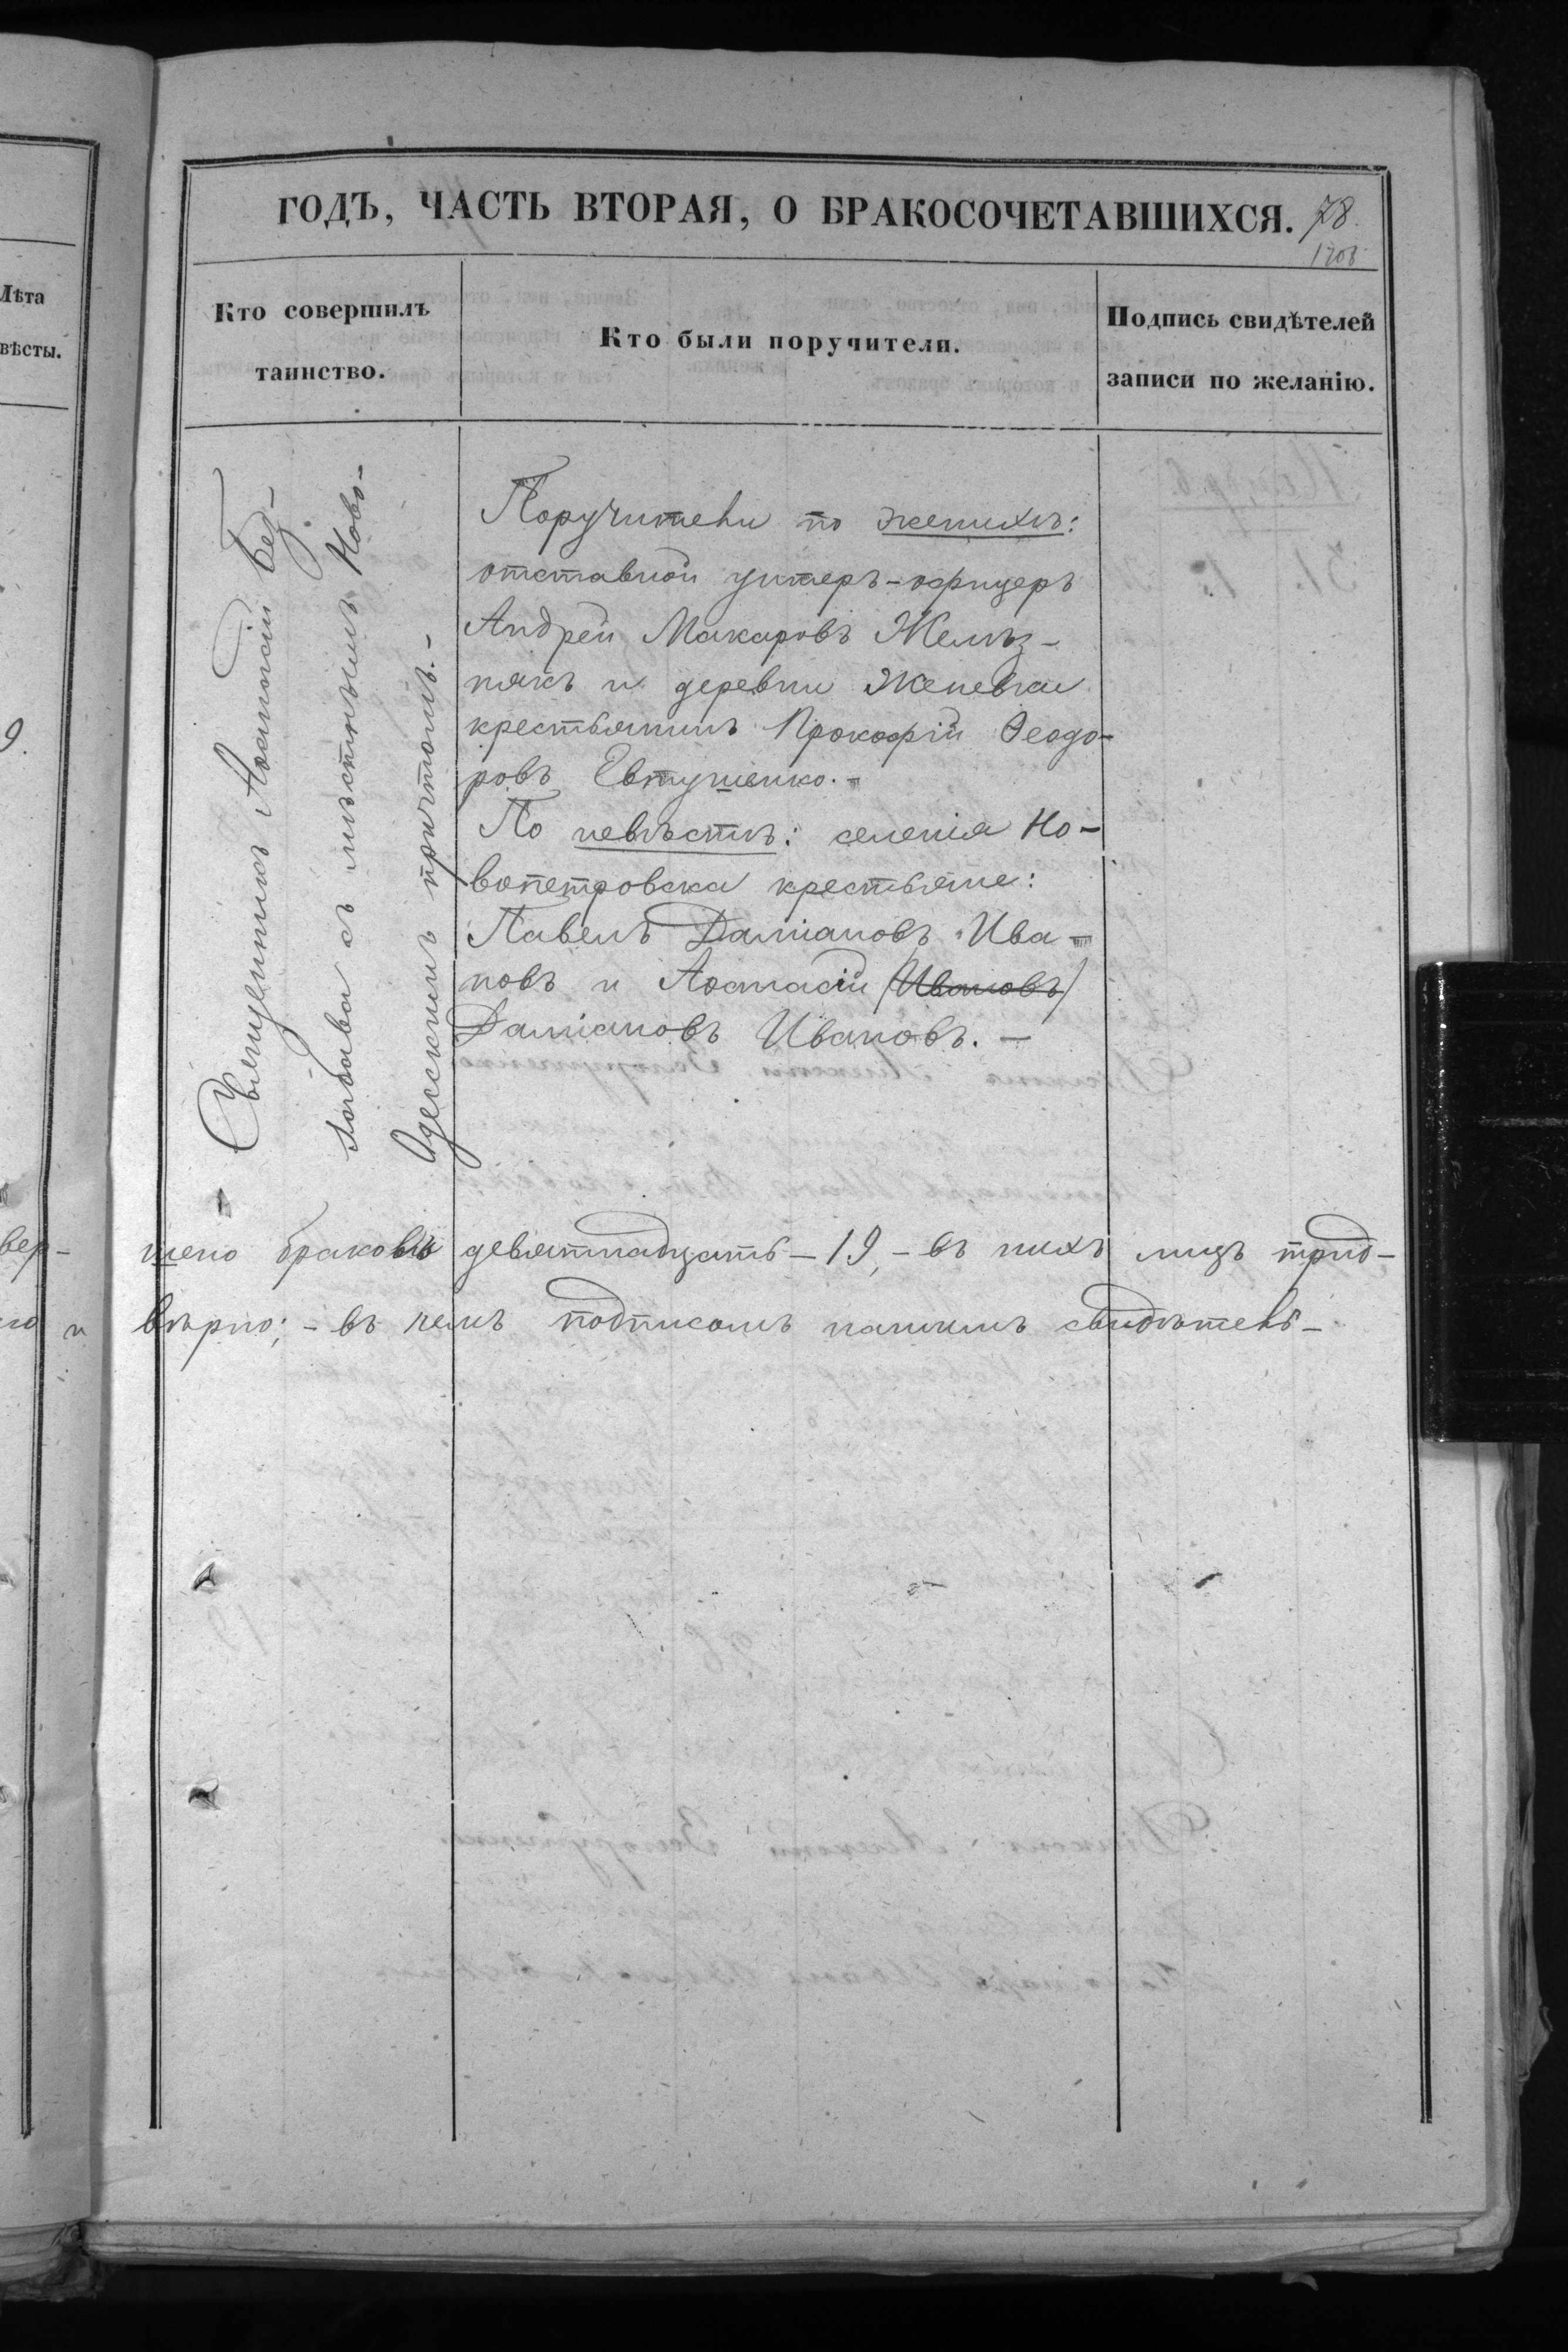 ГОДЪ, ЧАСТЬ ВТОРАЯ, О БРАКОСОЧЕТАВШИХСЯ. 78.
1208
Лѣта
вѣсты.
Кто совершилъ
таинство.
Кто были поручители.
Подпись свидѣтелей
записи по желанію.
9.
Священникъ
съ мѣстнымъ Ново-
Одесскимъ причтомъ.-
Поручители по женихѣ:
отставной унтеръ-офицеръ
Андрей Макаровъ Желѣз-
някъ и деревни Женевки
крестьянинъ Прокофій Ѳеодо-
ровъ Евтушенко.-
По невѣстѣ: селенія Но-
вопетровска крестьяне:
Павелъ Даміановъ Ива-
новъ и Аѳанасій (Ивановъ)
Даміановъ Ивановъ.-
вер- шено браковъ девятнадцать-19,-въ нихъ лицъ трид-
и вѣрно;-въ чемъ подписомъ нашимъ свидѣтель-